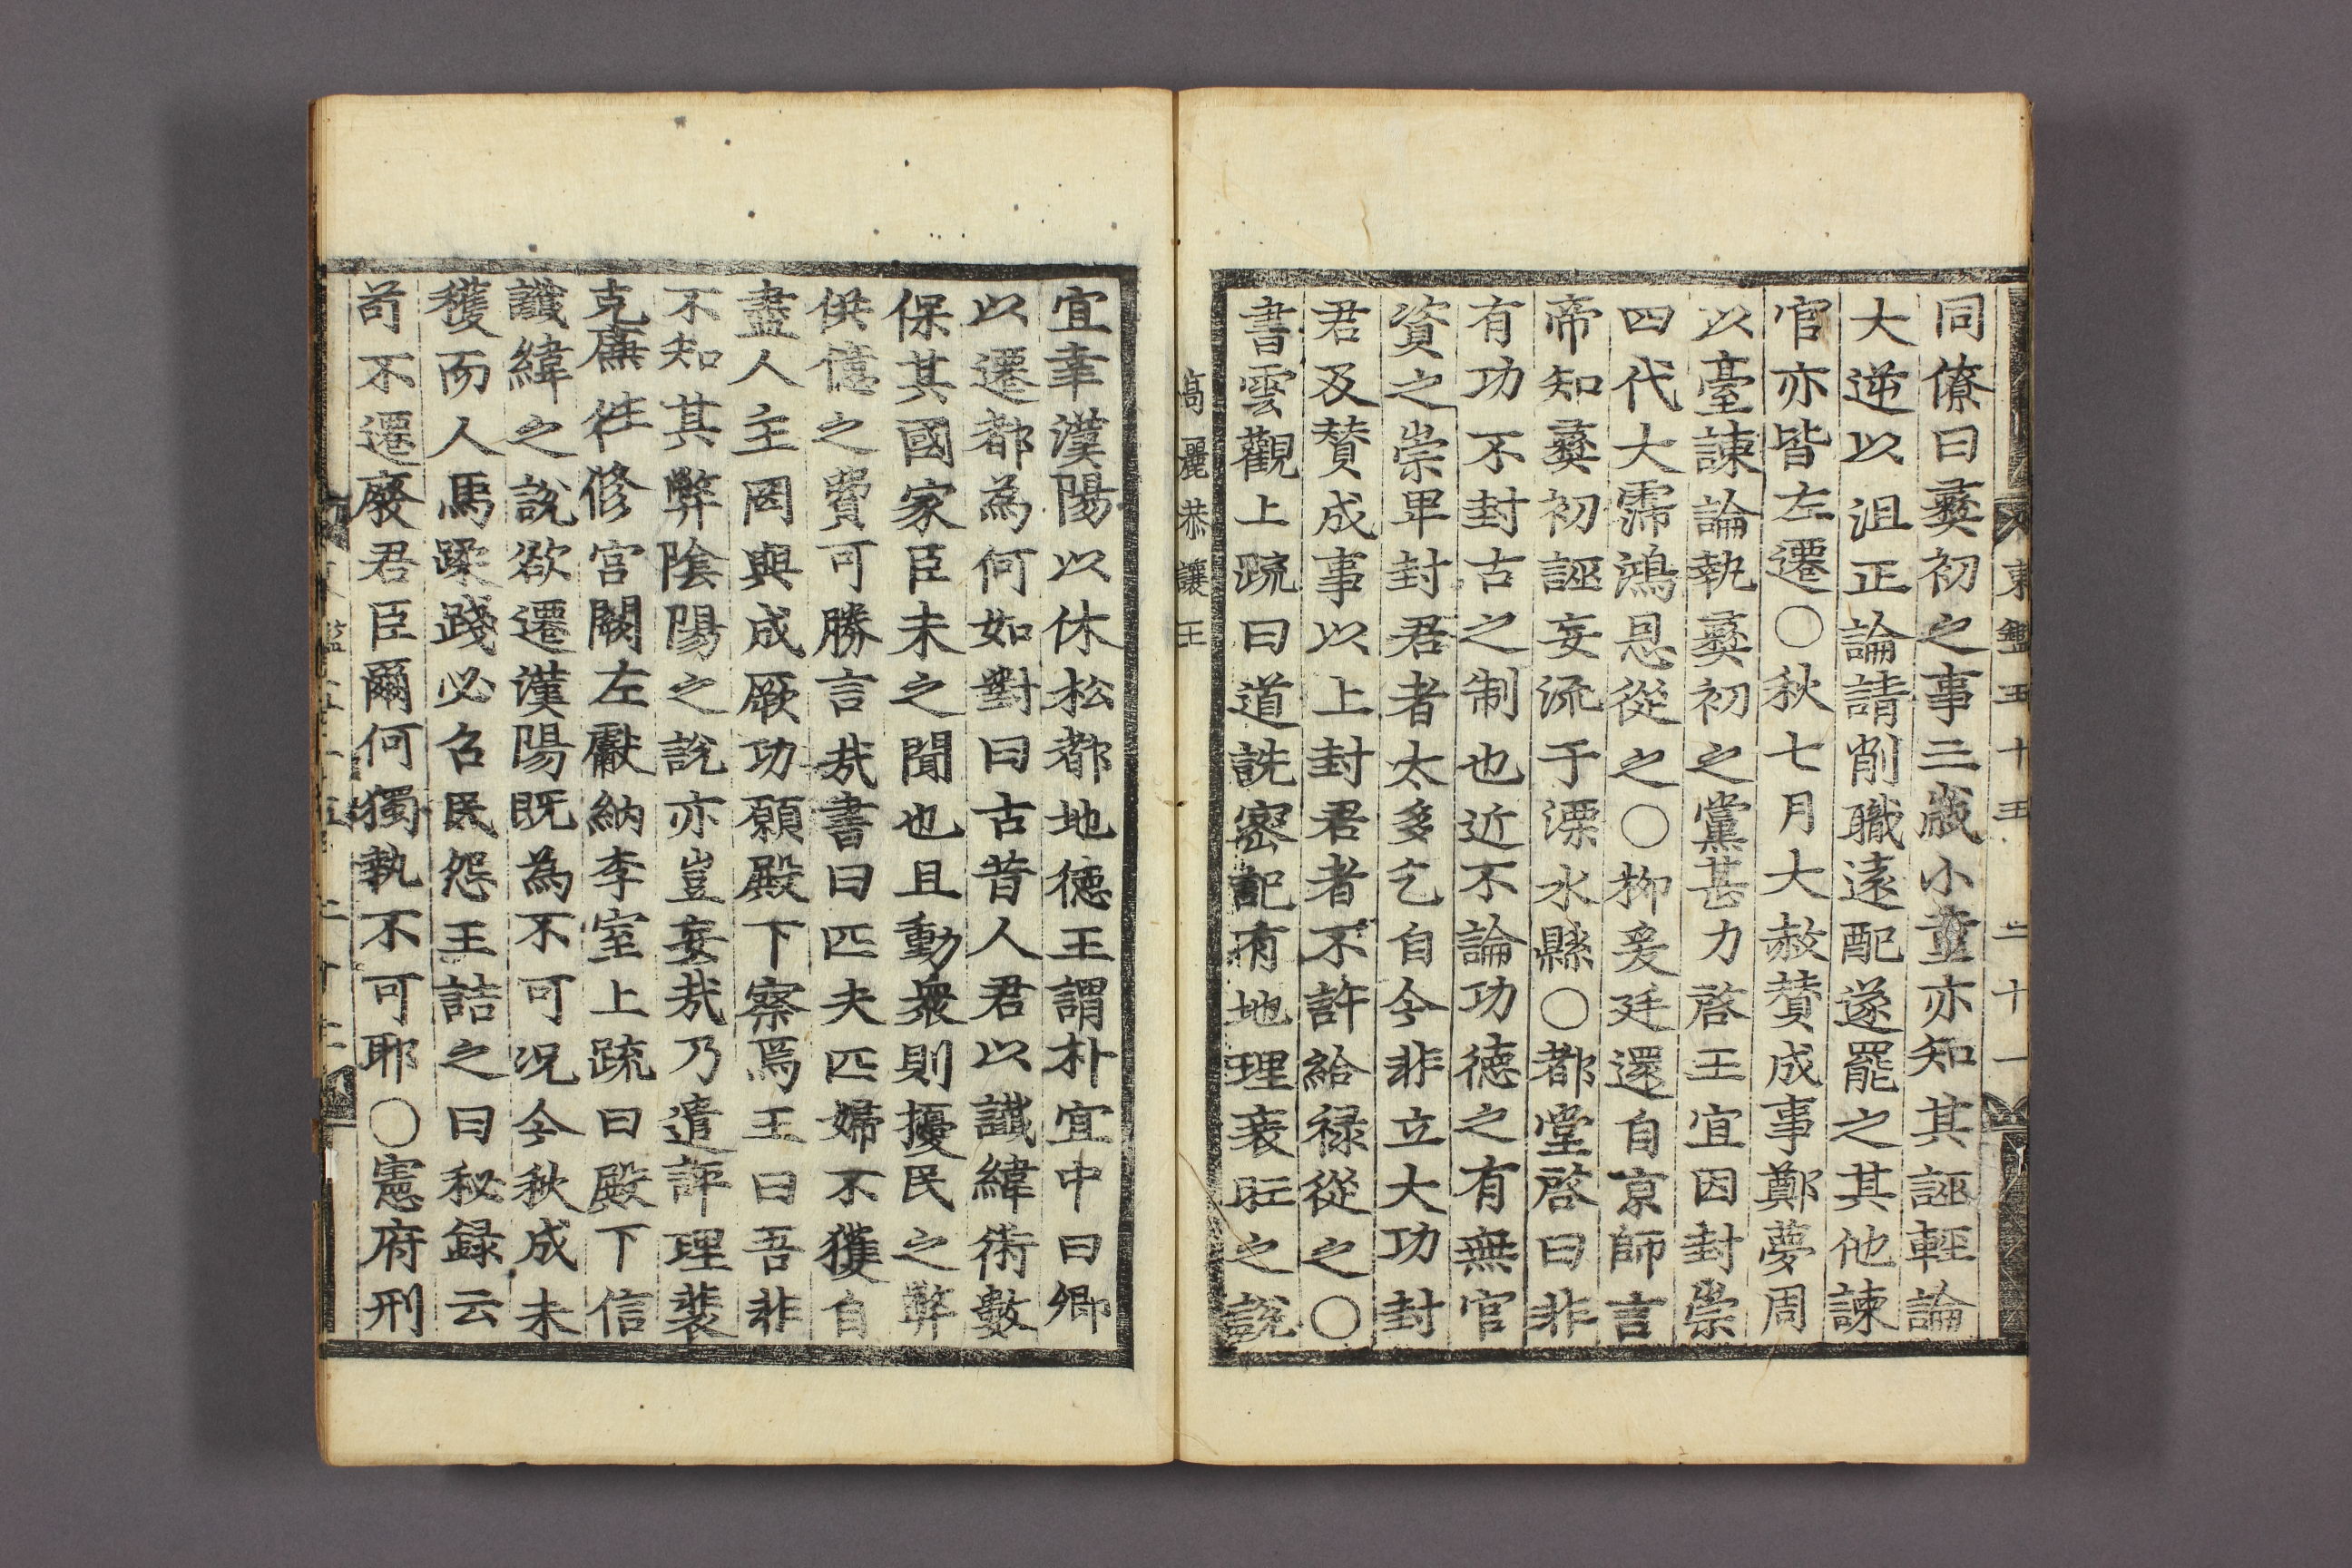 東鑑五十五 二十一
同僚曰彝初之事三歲小童亦知其誣輕論
大逆以沮正論請削職遠配遂罷之其他諫
官亦皆左遷〇秋七月大赦贊成事鄭夢周
以臺諫論執彝初之黨甚力啓王宜因封崇
四代大霈鴻恩從之〇柳爰廷還自京師言
帝知彝初誣妄流于漂水縣〇都堂啓曰非
有功不封古之制也近不論功德之有無官
資之崇卑封君者太多乞自今非立大功封
君及贊成事以上封君者不許給祿從之〇
書雲觀上疏曰道詵密記有地理衰旺之說
高麗恭讓王
宜幸漢陽以休松都地德王謂朴宜中曰卿
以遷都為何如對曰古昔人君以讖緯術數
保其國家臣未之聞也且動衆則擾民之弊
供億之費可勝言哉書曰匹夫匹婦不獲自
盡人主罔與成厥功願殿下察焉王曰吾非
不知其弊陰陽之說亦豈妄哉乃遣評理裴
克廉徃修宮闕左獻納李室上疏曰殿下信
讖緯之說欲遷漢陽旣為不可况今秋成未
穫而人馬蹂踐必召民怨王詰之曰秘録云
苟不遷廢君臣爾何獨執不可耶〇憲府刑